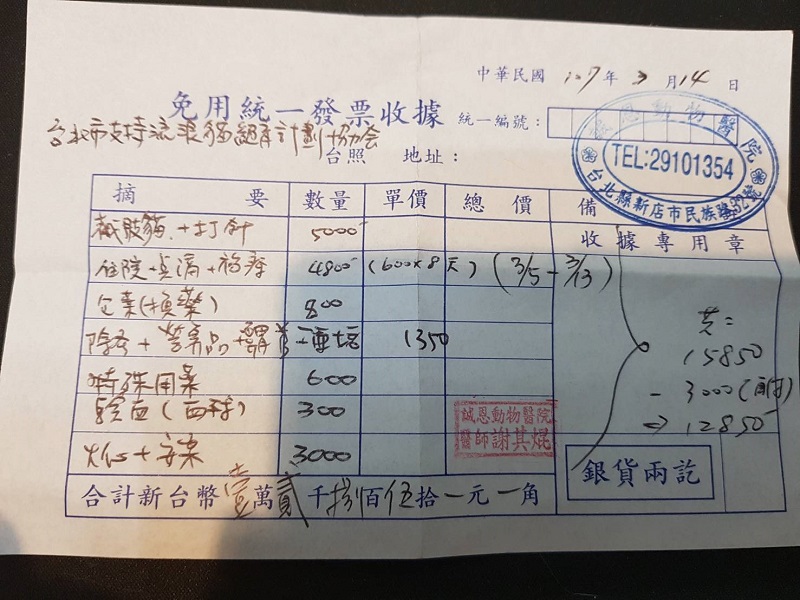 中華民國 107年3月14日
免用統一發票收據 統一編號：
台北市支持流浪貓絕育計劃協會
台照 地址：
誠恩動物醫院
TEL:29101354
台北縣新店市民族路
摘要 數量 單價 總價 備
收據專用章
截肢貓 + 打針 5000
住院 + 點滴 + 4800 (600×8天) (3/5 - 3/13)
(換藥) 800
+ 營養品 + 1350
特殊用藥 600
驗血(血球) 300
火化 + 安樂 3000
共=
15850
- 3000
⇒ 12850
誠恩動物醫院
醫師謝其焜
銀貨兩訖
合計新台幣壹萬貳千捌百伍拾一元一角